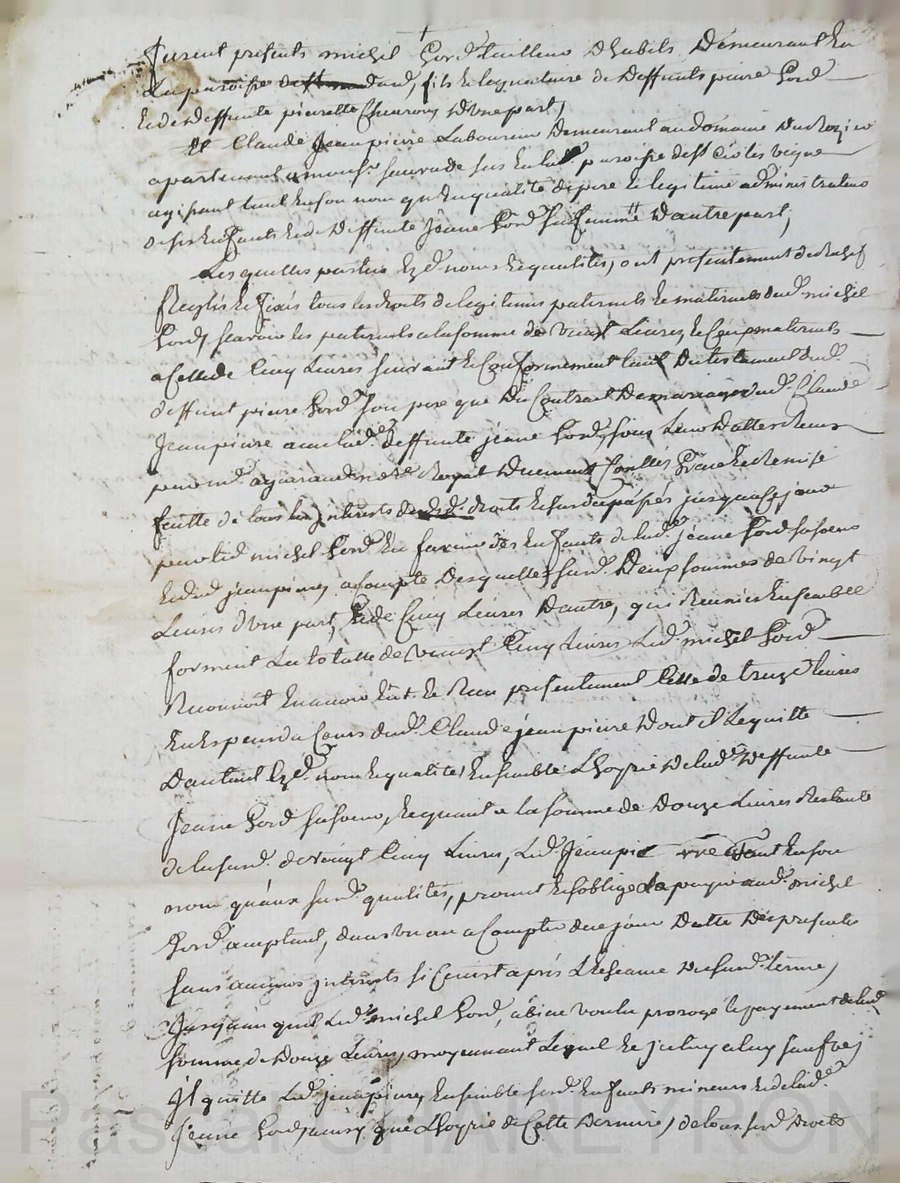 furent presents michel Gord tailleur Dhabits Demeurant en
La paroisse dud, fils Et legataire de Deffunts pierre Gord
Et de deffunte pierrette D'une part,
Et Claude Jeanpierre Laboureur Demeurant au domaine
apartenant a mons.r sauvade sis En lad paroisse de
agissant tant En son nom qu'En qualité de pere Et legitime administrateur
de ses Enfants Et de Deffunte Jeane Gord sa femme D'autre part,
Lesquelles parties Ezd. noms Et qualités, ont presentement
tous les droits de legitimes paternels Et maternels dud. michel
Gord, scavoir les paternels a la somme de vingt Livres, Et Ceux maternels
a Celle de Cinq Livres suivant Et Conformement tant Du testament dud.
deffunt pierre Gord son pere que Du Contrat De mariage dud. Claude
Jeanpierre avec lad. deffunte jeane Gord, sous Leurs Dattes
par m.e notre Royal Duement Conllés, grace Et Remise
faitte de tous les Interests desd. droits jusqu'a Ce jour
par led michel Gord En faveur des Enfants de lad. jeane Gord sa soeur
Et dud jeanpierre, a Compte Desquelles surd. Deux sommes de vingt
Livres D'une part, Et de Cinq Livres D'autre, qui Reunies Ensemble
forment La totalle de vingt Cinq Livres Led. michel Gord
Reconnoit En avoir Eut Et Recu presentement Celle de treize livres
En Espesces du Cours dud. Claude jeanpierre Dont il Le quitte
D'autant Ezd. nom Et qualités Ensemble L'hoyrie De lad. Deffunte
Jeane Gord sa soeur, Et quant a la somme de Douze Livres Restante
de la surd. de vingt Cinq Livres, Led. Jeanpierre tant En son
nom qu'aux surd. qualités, promet Et s'oblige La payer aud. michel
Gord acceptant, dans un an a Compter de ce jour Datte Des presentes
sans aucuns interests si Ce n'est après L'Echeance Du surd. terme,
Jusqu'auquel Led. michel Gord, a bien voulu prorogé le payement de lad.
somme de Douze Livres, moyennant Lequel
Il quitte Led. jeanpierre, Ensemble sesd. Enfants mineurs Et de lad.
Jeane Gord, ainsy que L'hoyrie de Cette Derniere, de tous surd. Droits
Pascal CHAREYRON